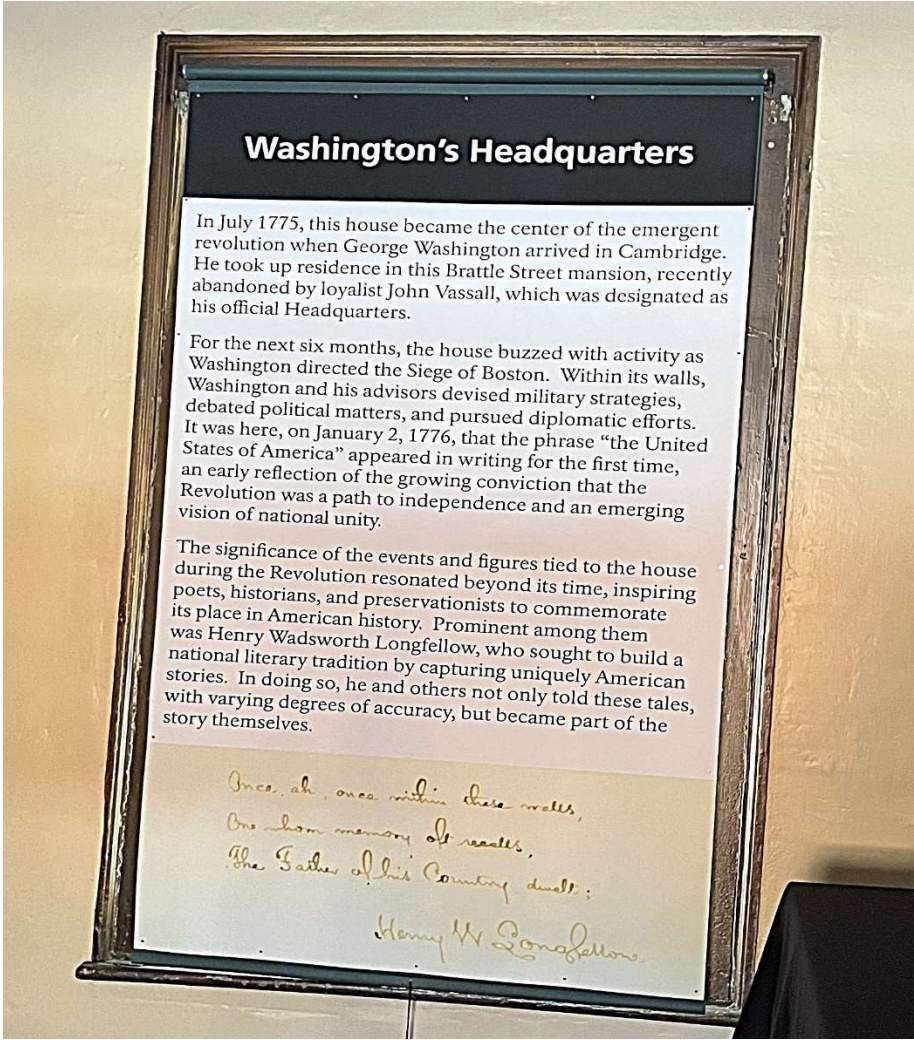 Washington's Headquarters
In July 1775, this house became the center of the emergent
revolution when George Washington arrived in Cambridge.
He took up residence in this Brattle Street mansion, recently
abandoned by loyalist John Vassall, which was designated as
his official Headquarters.
For the next six months, the house buzzed with activity as
Washington directed the Siege of Boston.  Within its walls,
Washington and his advisors devised military strategies,
debated political matters, and pursued diplomatic efforts.
It was here, on January 2, 1776, that the phrase “the United
States of America” appeared in writing for the first time,
an early reflection of the growing conviction that the
Revolution was a path to independence and an emerging
vision of national unity.
The significance of the events and figures tied to the house
during the Revolution resonated beyond its time, inspiring
poets, historians, and preservationists to commemorate
its place in American history.  Prominent among them
was Henry Wadsworth Longfellow, who sought to build a
national literary tradition by capturing uniquely American
stories.  In doing so, he and others not only told these tales,
with varying degrees of accuracy, but became part of the
story themselves.
Once, ah, once within these walls,
One whom memory oft recalls,
The Father of his Country dwelt;
Henry W. Longfellow.